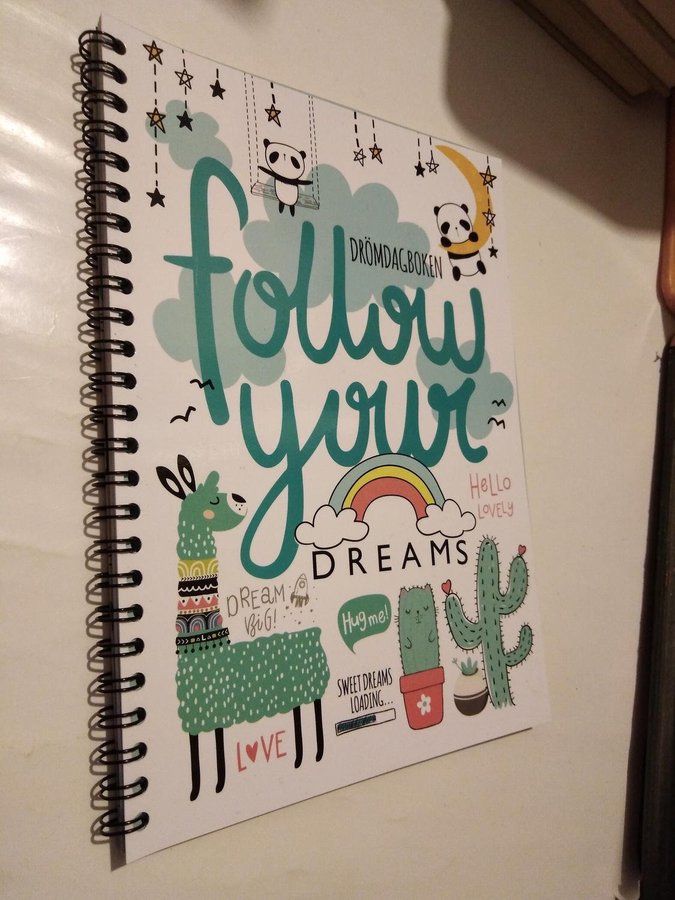 DRÖMDAGBOKEN
follow
your
DREAMS
HELLO
LOVELY
DREAM
BIG!
Hug me!
SWEET DREAMS
LOADING...
LOVE